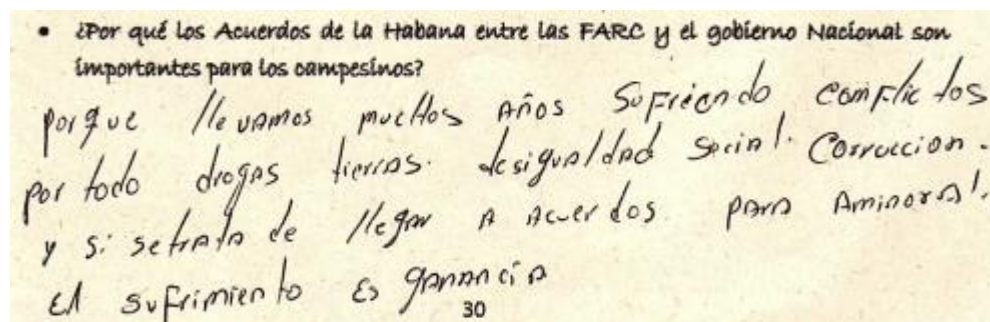 • ¿Por qué los Acuerdos de la Habana entre las FARC y el gobierno Nacional son
importantes para los campesinos?
porque llevamos muchos años sufriendo comflictos
por todo drogas tierras. desigualdad social. Corruccion.
y si setrata de llegar a acuerdos para Aminoral.
El sufrimiento es ganancia
30